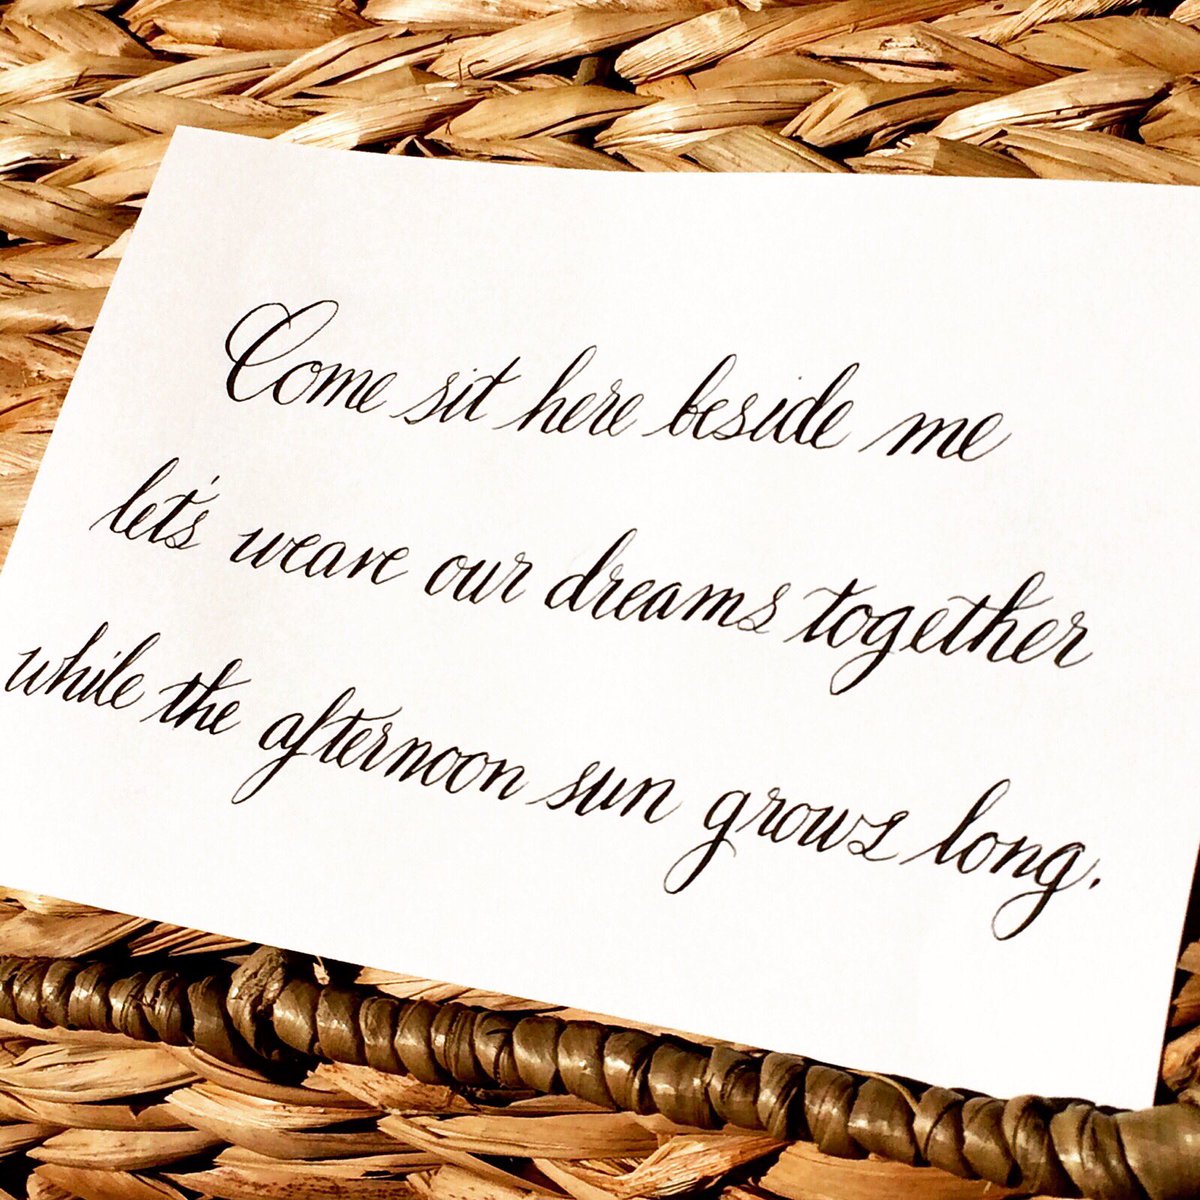 Come sit here beside me
let's weave our dreams together
while the afternoon sun grows long.